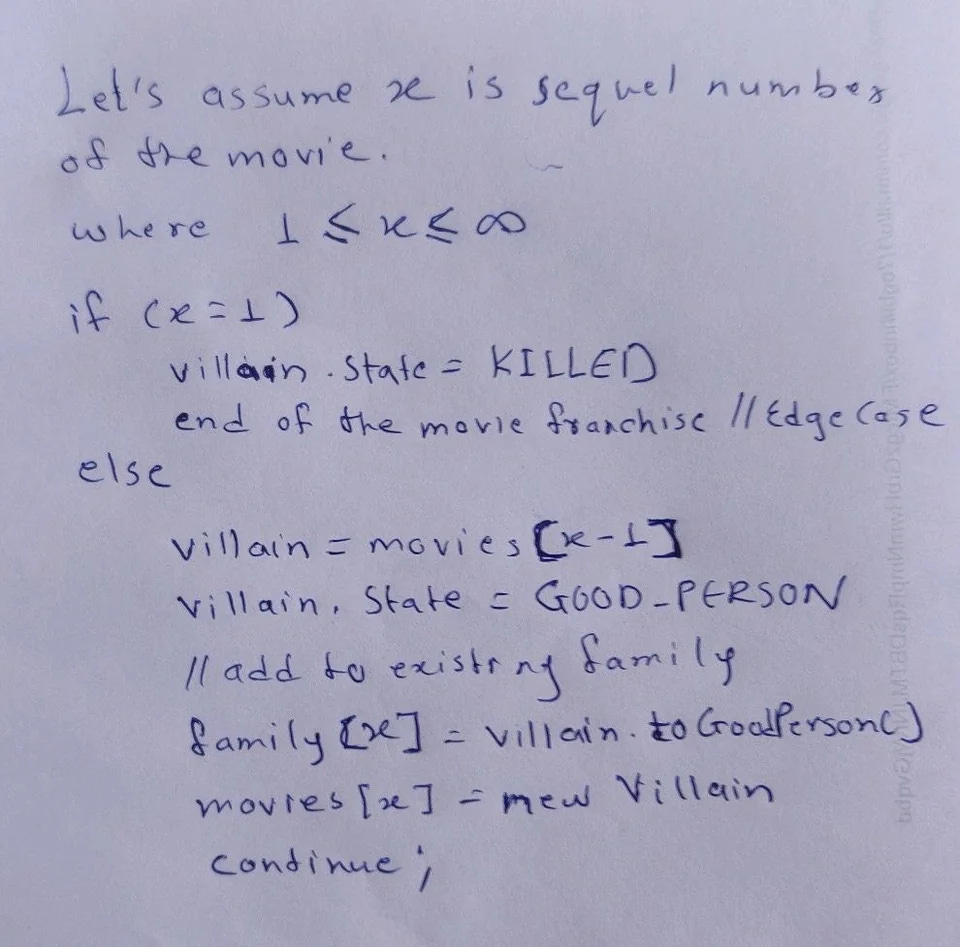 Let's assume x is sequel number
of the movie.
where 1 ≤ x ≤ ∞
if (x=1)
villain.State = KILLED
end of the movie franchise // Edge Case
else
villain = movies [x-1]
villain. State = GOOD_PERSON
// add to existing family
family [x] = villain. to GoodPerson()
movies [x] = new Villain
continue;